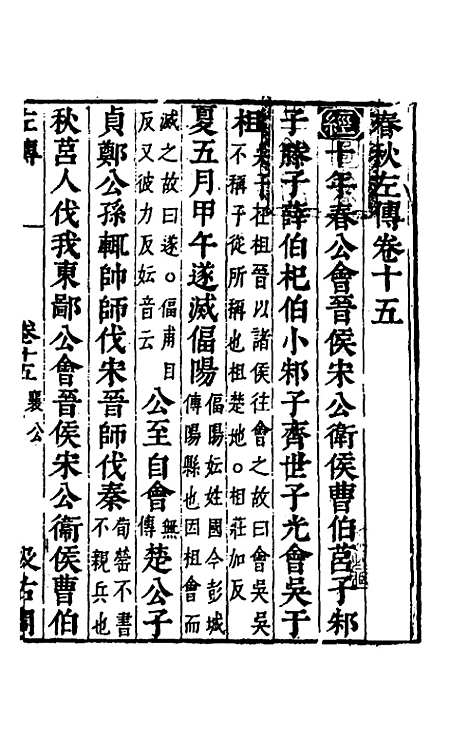 春秋左傳卷十五
經十年春公會晉侯宋公衛侯曹伯莒子邾
子滕子薛伯杞伯小邾子齊世子光會吳于
柤吳子在柤晉以諸侯往會之故曰會吳吳
不稱子從所稱也柤楚地○柤莊加反
夏五月甲午遂滅偪陽偪陽妘姓國今彭城
傅陽縣也因柤會而
滅之故曰遂○偪甫目
反又彼力反妘音云公至自會無
傳楚公子
貞鄭公孫輒帥師伐宋晉師伐秦荀罃不書
不親兵也
秋莒人伐我東鄙公會晉侯宋公衞侯曹伯
左傳
卷十五 襄公
汲古閣